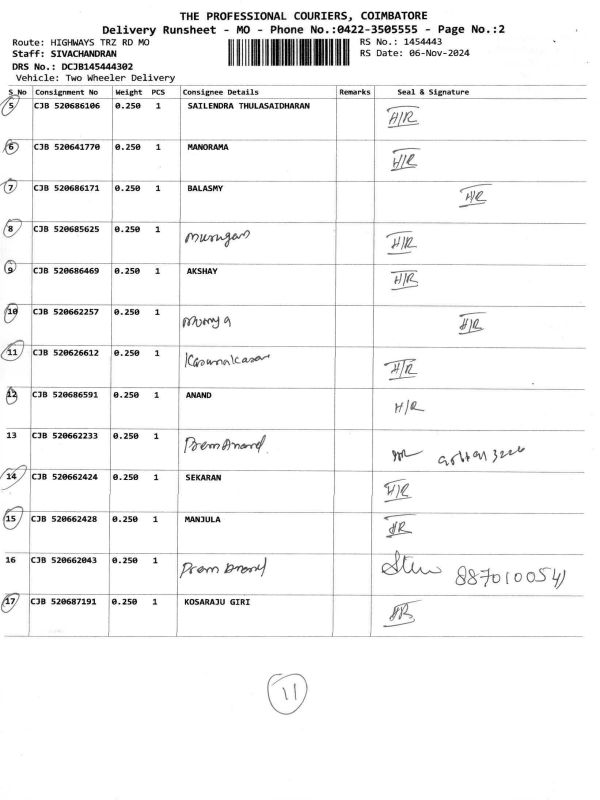 THE PROFESSIONAL COURIERS, COIMBATORE
Delivery Runsheet - MO - Phone No.:0422-3505555 - Page No.:2
Route: HIGHWAYS TRZ RD MO RS No.: 1454443
Staff: SIVACHANDRAN RS Date: 06-Nov-2024
DRS No.: DCJB145444302
Vehicle: Two Wheeler Delivery
S_No Consignment No Weight PCS Consignee Details Remarks Seal & Signature
5 CJB 520686106 0.250 1 SAILENDRA THULASAIDHARAN H/R
6 CJB 520641770 0.250 1 MANORAMA H/R
7 CJB 520686171 0.250 1 BALASMY H/R
8 CJB 520685625 0.250 1 Murugan H/R
9 CJB 520686469 0.250 1 AKSHAY H/R
10 CJB 520662257 0.250 1 H/R
11 CJB 520626612 0.250 1 H/R
12 CJB 520686591 0.250 1 ANAND H/R
13 CJB 520662233 0.250 1 Prem Anand
14 CJB 520662424 0.250 1 SEKARAN H/R
15 CJB 520662428 0.250 1 MANJULA H/R
16 CJB 520662043 0.250 1 Prem Anand
17 CJB 520687191 0.250 1 KOSARAJU GIRI
11